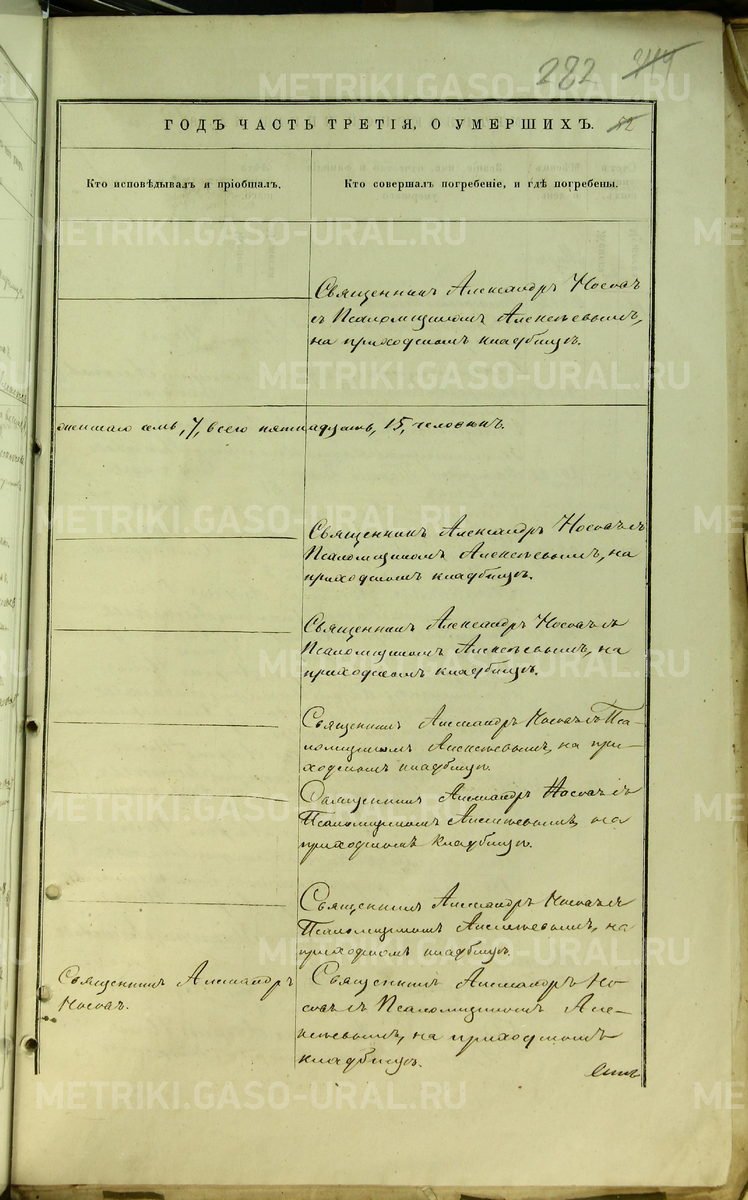 282
ГОДЪ ЧАСТЬ ТРЕТІЯ, О УМЕРШИХЪ.
52
Кто исповѣдывалъ и пріобщалъ.
Кто совершалъ погребеніе, и гдѣ погребены.
Священникъ Александръ Носовъ
съ Псаломщикомъ Алексѣевымъ,
на приходскомъ кладбищѣ.
семь, 7, всего пятнадцать, 15, человѣкъ.
Священникъ Александръ Носовъ съ
Псаломщикомъ Алексѣевымъ, на
приходскомъ кладбищѣ.
Священникъ Александръ Носовъ съ
Псаломщикомъ Алексѣевымъ, на
приходскомъ кладбищѣ.
Священникъ Александръ Носовъ съ Пса-
ломщикомъ Алексѣевымъ, на при-
ходскомъ кладбищѣ.
Священникъ Александръ Носовъ съ
Псаломщикомъ Алексѣевымъ, на
приходскомъ кладбищѣ.
Священникъ Александръ Носовъ съ
Псаломщикомъ Алексѣевымъ, на
приходскомъ кладбищѣ.
Священникъ Александръ
Носовъ.
Священникъ Александръ Но-
совъ съ Псаломщикомъ Але-
ксѣевымъ, на приходскомъ
кладбищѣ.
METRIKI.GASO-URAL.RU